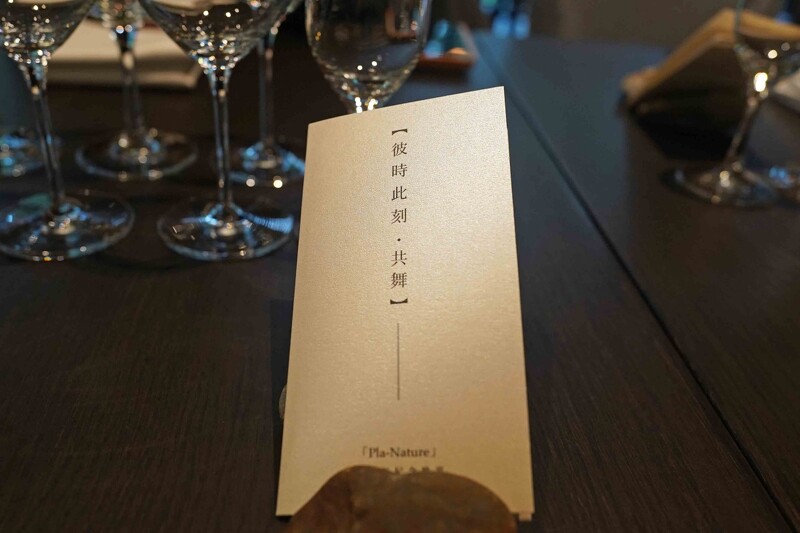 【彼時此刻・共舞】
「Pla-Nature」